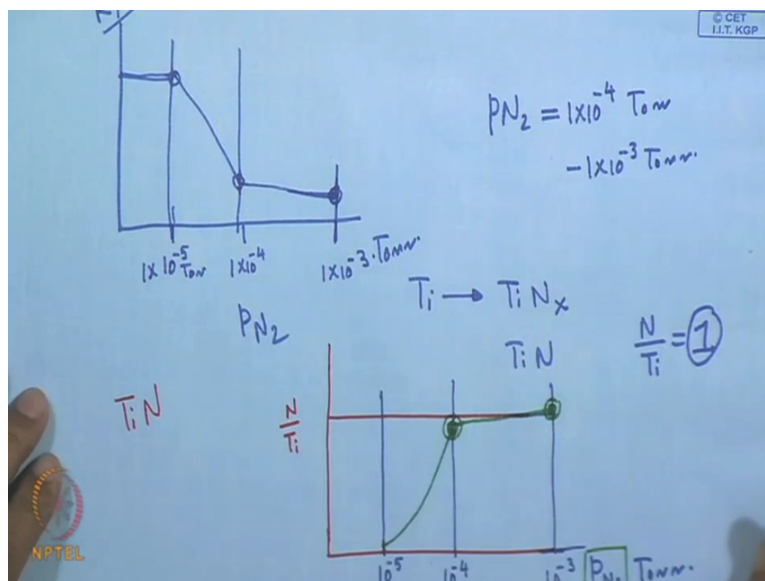 © CET
I.I.T. KGP
PN₂ = 1×10⁻⁴ Torr
- 1×10⁻³ Torr.
1×10⁻⁵ Torr
1×10⁻⁴
1×10⁻³ Torr.
PN₂
Ti → TiNx
TiN
N/Ti = 1
TiN
N/Ti
10⁻⁵
10⁻⁴
10⁻³
PN₂
Torr.
NPTEL